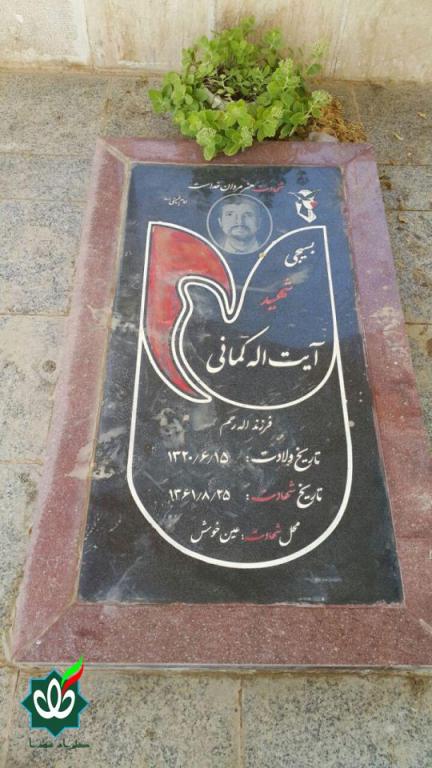 شهادت هنر مردان خداست
امام خمینی
بسیجی
شهید
آیت اله کمانی
فرزند اله رحم
تاریخ ولادت: ۱۳۲۰/۶/۱۵
تاریخ شهادت: ۱۳۶۱/۸/۲۵
محل شهادت: عین خوش